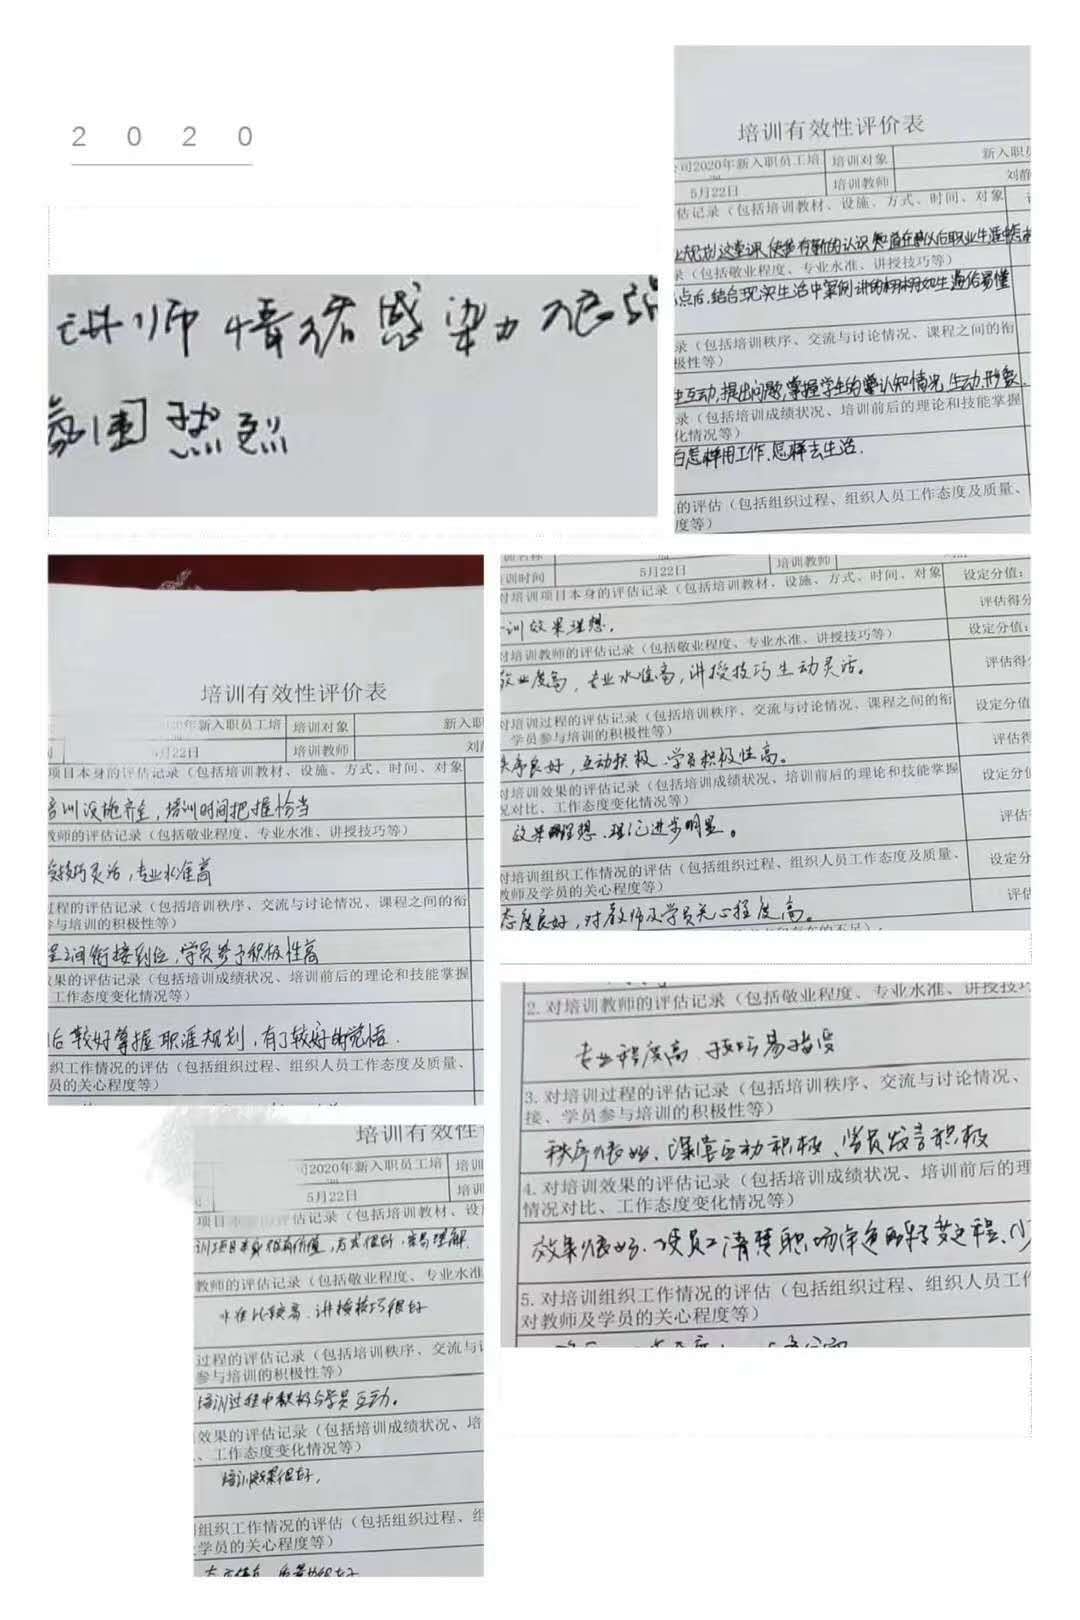 2020
讲师情绪感染力很强
氛围热烈
培训有效性评价表
司2020年新入职员工培 培训对象 新入职员
5月22日 培训教师
估记录（包括培训教材、设施、方式、时间、对象
规划这堂课，使我有新的认识
录（包括敬业程度、专业水准、讲授技巧等）
点后，结合现实生活中案例讲的栩栩如生通俗易懂
录（包括培训秩序、交流与讨论情况、课程之间的衔
极性等）
互动，提出问题，掌握学生的认知情况，生动，形象
录（包括培训成绩状况、培训前后的理论和技能掌握
化情况等）
白怎样用工作，怎样去生活.
的评估（包括组织过程、组织人员工作态度及质量、
度等）
培训有效性评价表
2020年新入职员工培 培训对象 新入职
5月22日 培训教师
项目本身的评估记录（包括培训教材、设施、方式、时间、对象
培训设施齐全，培训时间把握恰当
教师的评估记录（包括敬业程度、专业水准、讲授技巧等）
授技巧灵活，专业水准高
过程的评估记录（包括培训秩序、交流与讨论情况、课程之间的衔
参与培训的积极性等）
程之间衔接到位，学员参予积极性高
效果的评估记录（包括培训成绩状况、培训前后的理论和技能掌握
工作态度变化情况等）
后较好掌握职涯规划，有了较好的觉悟.
织工作情况的评估（包括组织过程、组织人员工作态度及质量、
员的关心程度等）
训时间 5月22日 培训教师
对培训项目本身的评估记录（包括培训教材、设施、方式、时间、对象 设定分值：
训效果理想. 评估得分
对培训教师的评估记录（包括敬业程度、专业水准、讲授技巧等） 设定分值：
敬业度高，专业水准高，讲授技巧生动灵活。 评估得分
对培训过程的评估记录（包括培训秩序、交流与讨论情况、课程之间的衔 设定分值
、学员参与培训的积极性等）
秩序良好，互动积极，学员积极性高。 评估得
对培训效果的评估记录（包括培训成绩状况、培训前后的理论和技能掌握 设定分
况对比、工作态度变化情况等）
效果理想、理论进步明显。 评估
对培训组织工作情况的评估（包括组织过程、组织人员工作态度及质量、 设定分
教师及学员的关心程度等）
态度良好，对教师及学员关心程度高。 评估
2. 对培训教师的评估记录（包括敬业程度、专业水准、讲授技巧
专业程度高
3. 对培训过程的评估记录（包括培训秩序、交流与讨论情况、
接、学员参与培训的积极性等）
秩序很好、课堂互动积极、学员发言积极
4. 对培训效果的评估记录（包括培训成绩状况、培训前后的理
情况对比、工作态度变化情况等）
效果很好、使员工清楚职场
5. 对培训组织工作情况的评估（包括组织过程、组织人员工作
对教师及学员的关心程度等）
培训有效性
司2020年新入职员工培 培训
5月22日 培训
项目本身的评估记录（包括培训教材、设
训项目本身很有价值，方式很好，容易理解.
教师的评估记录（包括敬业程度、专业水准
水准比较高，讲授技巧很好
过程的评估记录（包括培训秩序、交流与讨
参与培训的积极性等）
培训过程中积极与学员互动。
效果的评估记录（包括培训成绩状况、培
、工作态度变化情况等）
培训效果很好，
组织工作情况的评估（包括组织过程、组
学员的关心程度等）